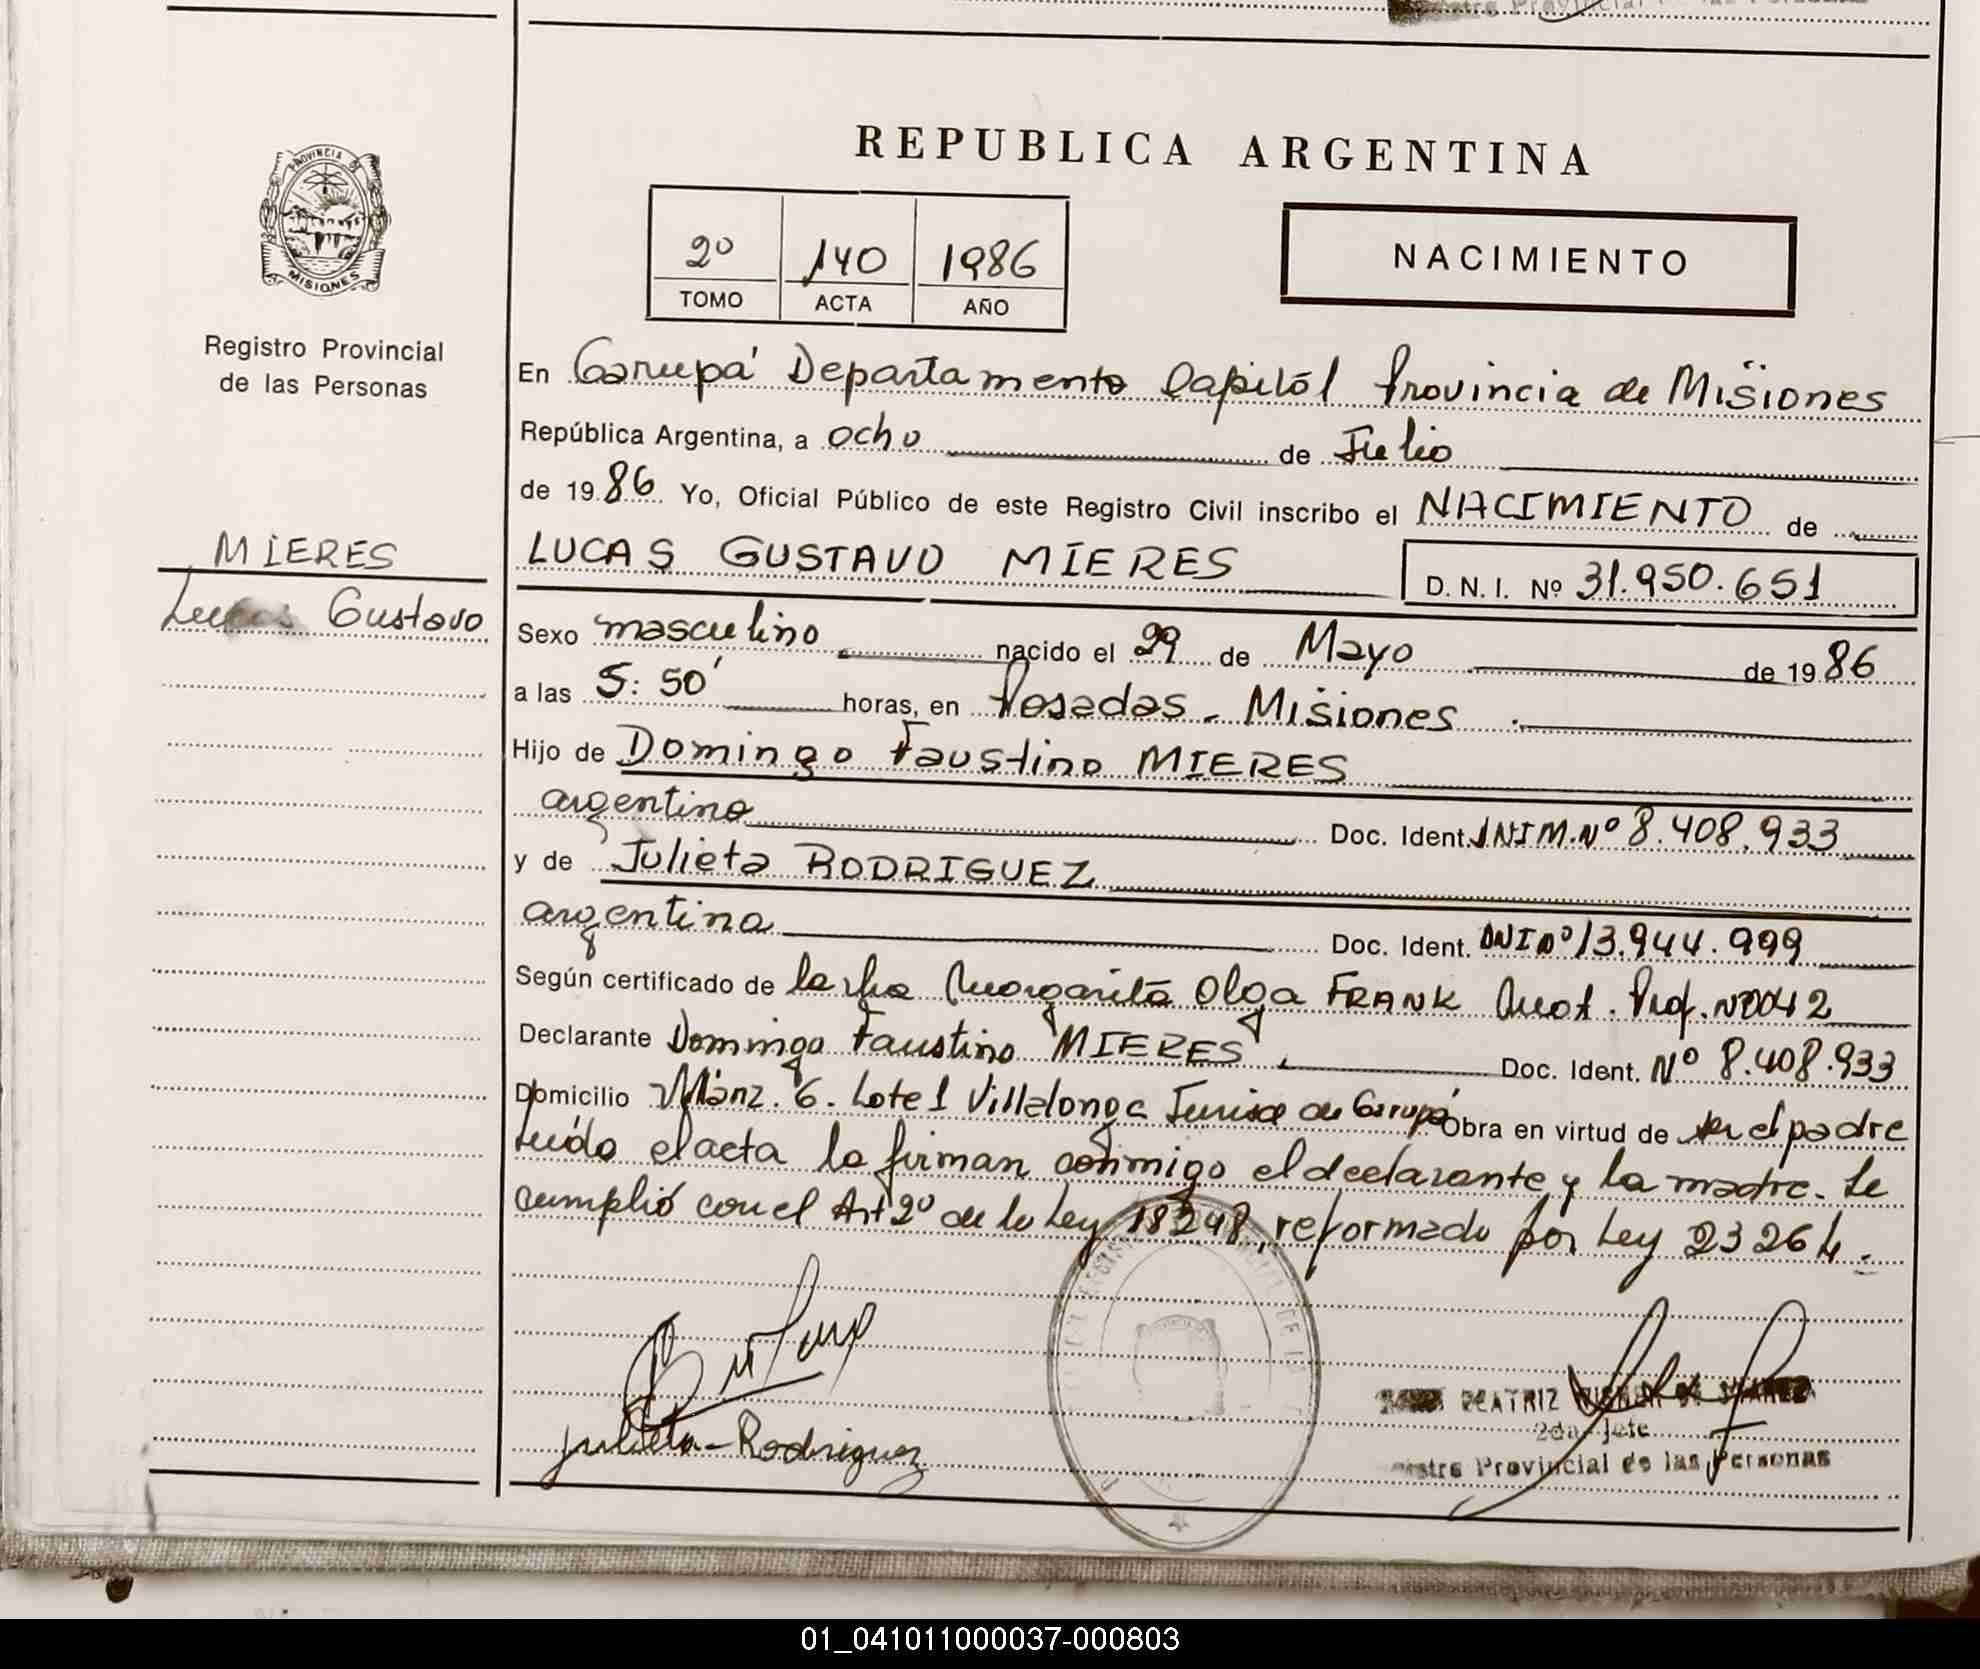 REPUBLICA ARGENTINA
PROVINCIA DE
MISIONES
Registro Provincial
de las Personas
2º 140 1986
TOMO ACTA AÑO
NACIMIENTO
En Garupá Departamento Capital Provincia de Misiones
República Argentina, a ocho de Julio
de 1986 Yo, Oficial Público de este Registro Civil inscribo el NACIMIENTO de
MIERES
LUCAS GUSTAVO MIERES D. N. I. Nº 31.950.651
Lucas Gustavo
Sexo masculino nacido el 29 de Mayo de 1986
a las 5:50' horas, en Posadas - Misiones
Hijo de Domingo Faustino MIERES
argentino Doc. Ident. Nº 8.408.933
y de Julieta RODRIGUEZ
argentina Doc. Ident. DNI Nº 13.944.999
Según certificado de la Margarita Olga FRANK Mat. Prof. Nº0042
Declarante Domingo Faustino MIERES Doc. Ident. Nº 8.408.933
Domicilio Manz. 6. Lote 1 Villalonga de Garupá Obra en virtud de ser el padre
Leída el acta la firman conmigo el declarante y la madre. Se
cumplió con el Art 2º de la Ley 18248, reformado por Ley 23264.-
Julieta - Rodriguez
BEATRIZ
2da. Jefe
Provincial de las Personas
01_041011000037-000803